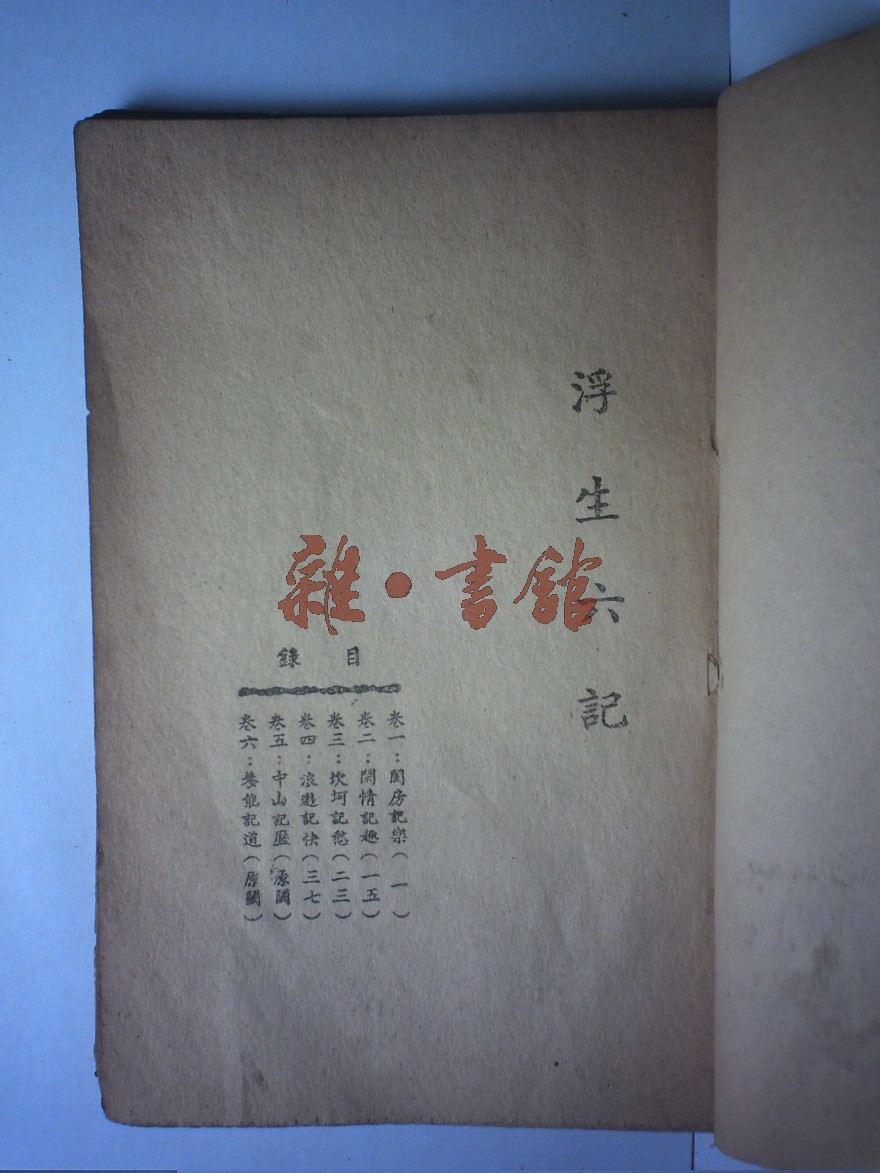 浮生六記
雜·書館
目錄
卷一：閨房記樂（一）
卷二：閒情記趣（一五）
卷三：坎坷記愁（二三）
卷四：浪遊記快（三七）
卷五：中山記歷（原闕）
卷六：養能記道（原闕）